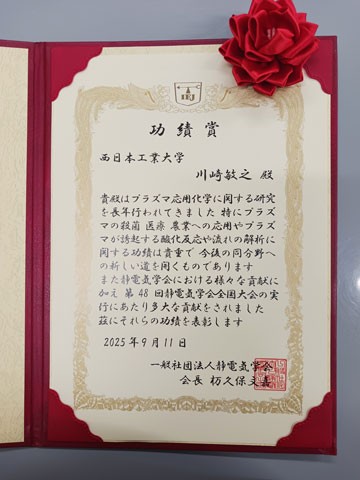 功績賞
西日本工業大学
川﨑敏之 殿
貴殿はプラズマ応用化学に関する研究
を長年行われてきました 特にプラズ
マの殺菌 医療 農業への応用やプラズ
マが誘起する酸化反応や流れの解析に
関する功績は貴重で 今後の同分野へ
の新しい道を開くものであります
また静電気学会における様々な貢献に
加え 第48回静電気学会全国大会の実
行にあたり多大な貢献をされました
茲にそれらの功績を表彰します
2025年9月11日
一般社団法人静電気学会
会長 杤久保文嘉